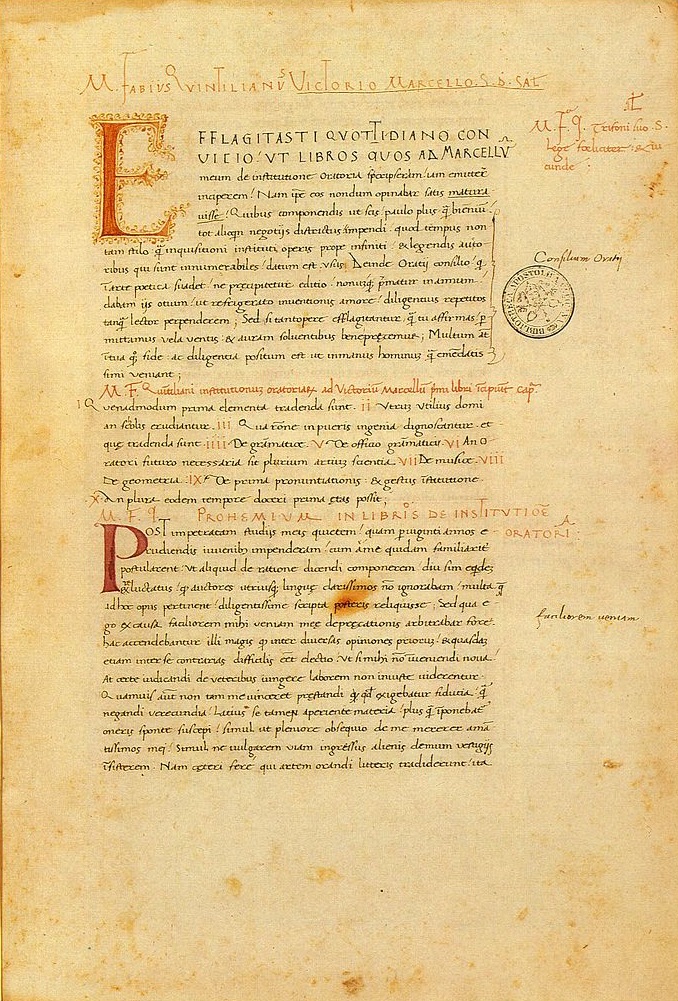 M. FABIUS QVINTILIANUS VICTORIO MARCELLO. S. D. SAL
M. F. Q. Trifoni suo. S.
lege foeliciter: & iu
cunde
EFFLAGITASTI QVOTTIDIANO CON
VICIO: UT LIBROS QUOS AD MARCELLŪ
meum de institutione oratoria scripseram: iam emittere
inciperem: Nam ipse eos nondum opinabar satis matura
uisse: Quibus componendis ut scis, paulo plus q̄ bienniū
tot alioqn negotijs districtus impendi. quod tempus non
tam stilo q̄ inquisitioni instituti operis prope infiniti: & legendis aucto
ribus qui sunt innumerabiles: datum est. Vsus Deinde Oratij consilio: q
ī arte poetica suadet: ne precipitetur editio: nonūq; prematur in annum
dabam ijs otium: ut refrigerato inuentionis amore: diligentius repetitos
tanq̄ lector perpenderem; Sed si tantopere efflagitantur, q̄ tu affirmas: p
mittamus vela ventis: & auram soluentibus bene precemur; Multum aūt
ī tua q; fide: ac diligentia positum est: ut in manus hominum q̄ emēdatis
simi veniant;
Consilium Oratij
M. F. Quītiliani institutionum oratoriarum ad Victoriū Marcellū primi libri īcipiunt cap.
I Quenadmodum prima elementa tradenda sunt. II Vtrum vtilius domi
an scolis erudiantur. III Qua rōne in pueris ingenia dignoscantur. et
que tradenda sunt. IIII De grāmatice. V De officio grāmatici. VI An o
ratori futuro necessaria sit plurium artium scientia. VII De musice. VIII
De geometria. IX De prima pronuntiationis: & gestus īstitutione.
X An plura eodem tempore doceri prima etas possit;
M. F. Q. PROHEMIUM IN LIBRIS DE INSTITUTIOĒ
ORATORIA:
POST impetratam studijs meis quietem: quam per uiginti annos e
rudiendis iuuenibus impenderam: cum a me quidam familiariter
postularent: Vt aliquid de ratione dicendi componerem: diu sum eqdem
reluctatus: q auctores utriusq; lingue clarissimos nō ignorabam: multa q
ad hoc opus pertinent: diligentissime scripta posteris reliquisse; Sed qua e
go ex causa faciliorem mihi veniam mee deprecationis arbitrabar fore:
hac accendebantur illi magis q̄ inter diuersas opiniones priorum: & quasdam
etiam inter se contrarias: difficilis eēt electio: Vt si mihi nō inueniendi noua:
At certe iudicandi de veteribus iungere laborem non iniuste viderentur.
Quamuis aūt non tam me vinceret prestandi q̄ exigebatur fiducia: q̄
negandi verecundia: Latius se tamen aperiente materia: plus q̄ īponebat
oneris sponte suscepi: simul ut pleniore obsequio de me mererer amā
tissimos mei: Simul ne vulgarem viam ingressus alienis demum vestigijs
īsisterem. Nam ceteri fere qui artem orandi litteris tradiderunt: ita
faciliorem veniam